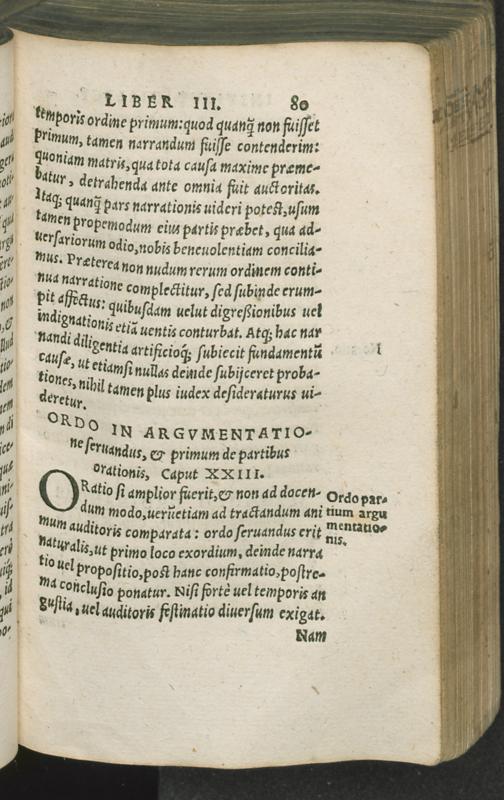 LIBER III. 80
temporis ordine primum: quod quanq̃ non fuisset
primum, tamen narrandum fuisse contenderim:
quoniam matris, qua tota causa maxime præme-
batur, detrahenda ante omnia fuit auctoritas.
Itaq; quanq̃ pars narrationis uideri potest, usum
tamen propemodum eius partis præbet, qua ad-
uersariorum odio, nobis beneuolentiam concilia-
mus. Præterea non nudum rerum ordinem conti-
nua narratione complectitur, sed subinde erum-
pit affectus: quibusdam uelut digreßionibus uel
indignationis etiã uentis conturbat. Atq; hac nar
nandi diligentia artificioq́; subiecit fundamentũ
causæ, ut etiamsi nullas deinde subijceret proba-
tiones, nihil tamen plus iudex desideraturus ui-
deretur.
ORDO IN ARGVMENTATIO-
ne seruandus, & primum de partibus
orationis, Caput XXIII.
ORatio si amplior fuerit, & non ad docen-
dum modo, uerũetiam ad tractandum ani
mum auditoris comparata: ordo seruandus erit
naturalis, ut primo loco exordium, deinde narra
tio uel propositio, post hanc confirmatio, postre-
ma conclusio ponatur. Nisi fortè uel temporis an
gustia, uel auditoris festinatio diuersum exigat.
Nam
Ordo par-
tium argu
mentatio-
nis.